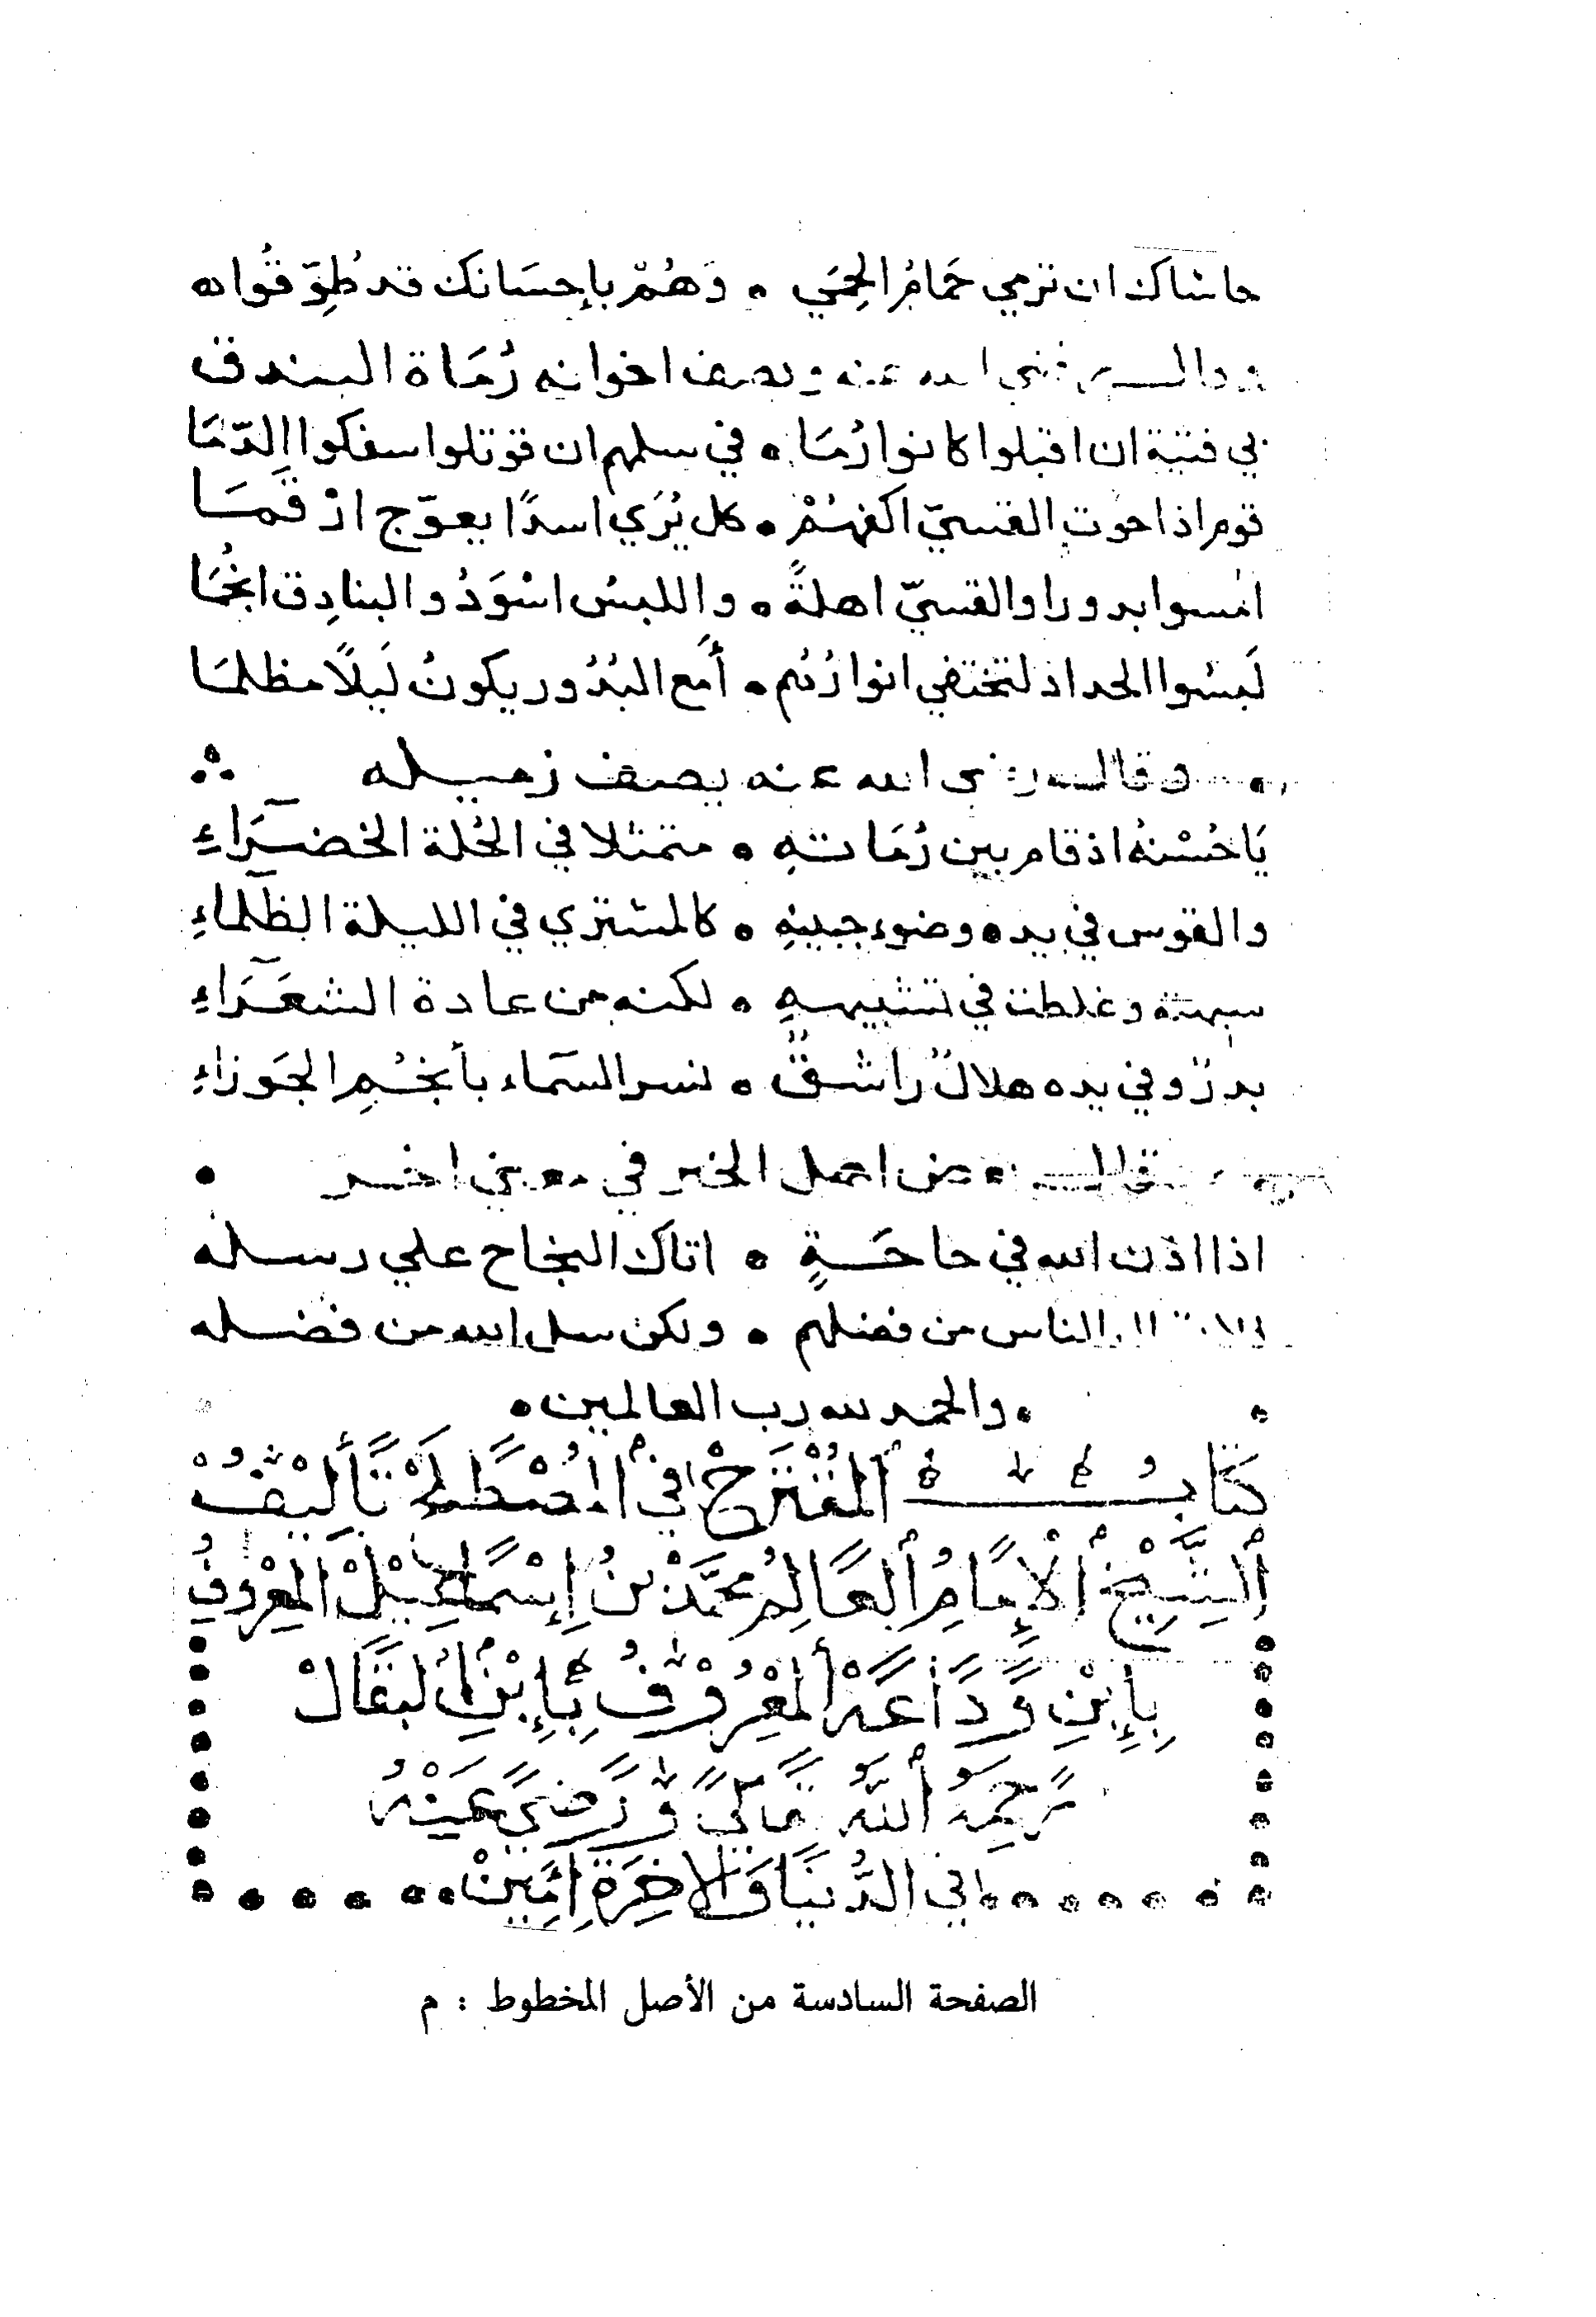 حاشاك ان ترمي حَمَامُ الحِمَي ۰ وَهُمْ بإحسَانك قد طُوِّقُوا ه
رضي الله عنه ويصف اخوانه رُمَاة البندق
بي فتية ان اقبلوا كانوا رُمَا ۰ في سلمهم ان قوتلوا سفكوا الدّمَا
قوم اذا حوت القسيّ اكفهُمْ ۰ كل يُرَي اسدًا يعوّج ارْقمَا
امسوا بدورا والقسيّ اهلةً ۰ واللبس اسْوَدُ والبنادِق انجُمَا
لَبسُوا الحداد لتختفي انوارُهم ۰ أمع البُدُور يكونُ لَيلًا مظلمَا
وقال رضي الله عنه يصف زميله
يَا حُسْنهُ اذ قام بين رُمَاتهِ ۰ متمثلا في الحُلة الخضرَاءِ
والقوس في يده وضوء جبينهِ ۰ كالمشتري في الليلة الظلماءِ
شبهته وغلطت في تشبيههِ ۰ لكنه من عادة الشعَرَاءِ
بدرٌ وفي يده هلالٌ راشقٌ ۰ نسر السمَاء بأنجُمِ الجَوزاءِ
قال بعض اهل الخير في معني اخر
اذا اذن الله في حاجَةٍ ۰ اتاك النجاح علي رسله
الناس من فضلهم ۰ ولكن سل الله من فضله
۰ والحمد لله رب العالمين ۰
كتَابُ المُقْتَرَحْ في المُصْطَلَحْ تَأليْفُ
الشَّيْخِ الْإِمَامِ العَالِمِ مُحَمَّدْ بنُ إِسْمَاعِيْلْ المَعْرُوفُ
بِإِبْنِ وَدَاعَهْ المَعْرُوْفُ بِإِبْنِ البَقَالْ
رَحِمَهُ اللَّهُ تعَالَى وَرَضِيَ عَنْهُ
في الدُّنيَا وَالاخِرَةِ امِّينْ
الصفحة السادسة من الأصل المخطوط : م